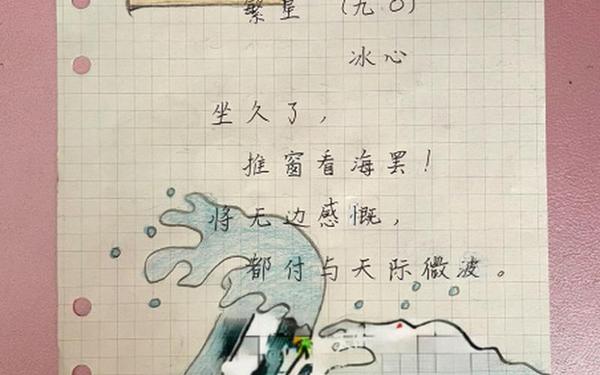 繁星 （九〇）
冰心
坐久了，
推窗看海罢！
将无边感慨，
都付与天际微波。